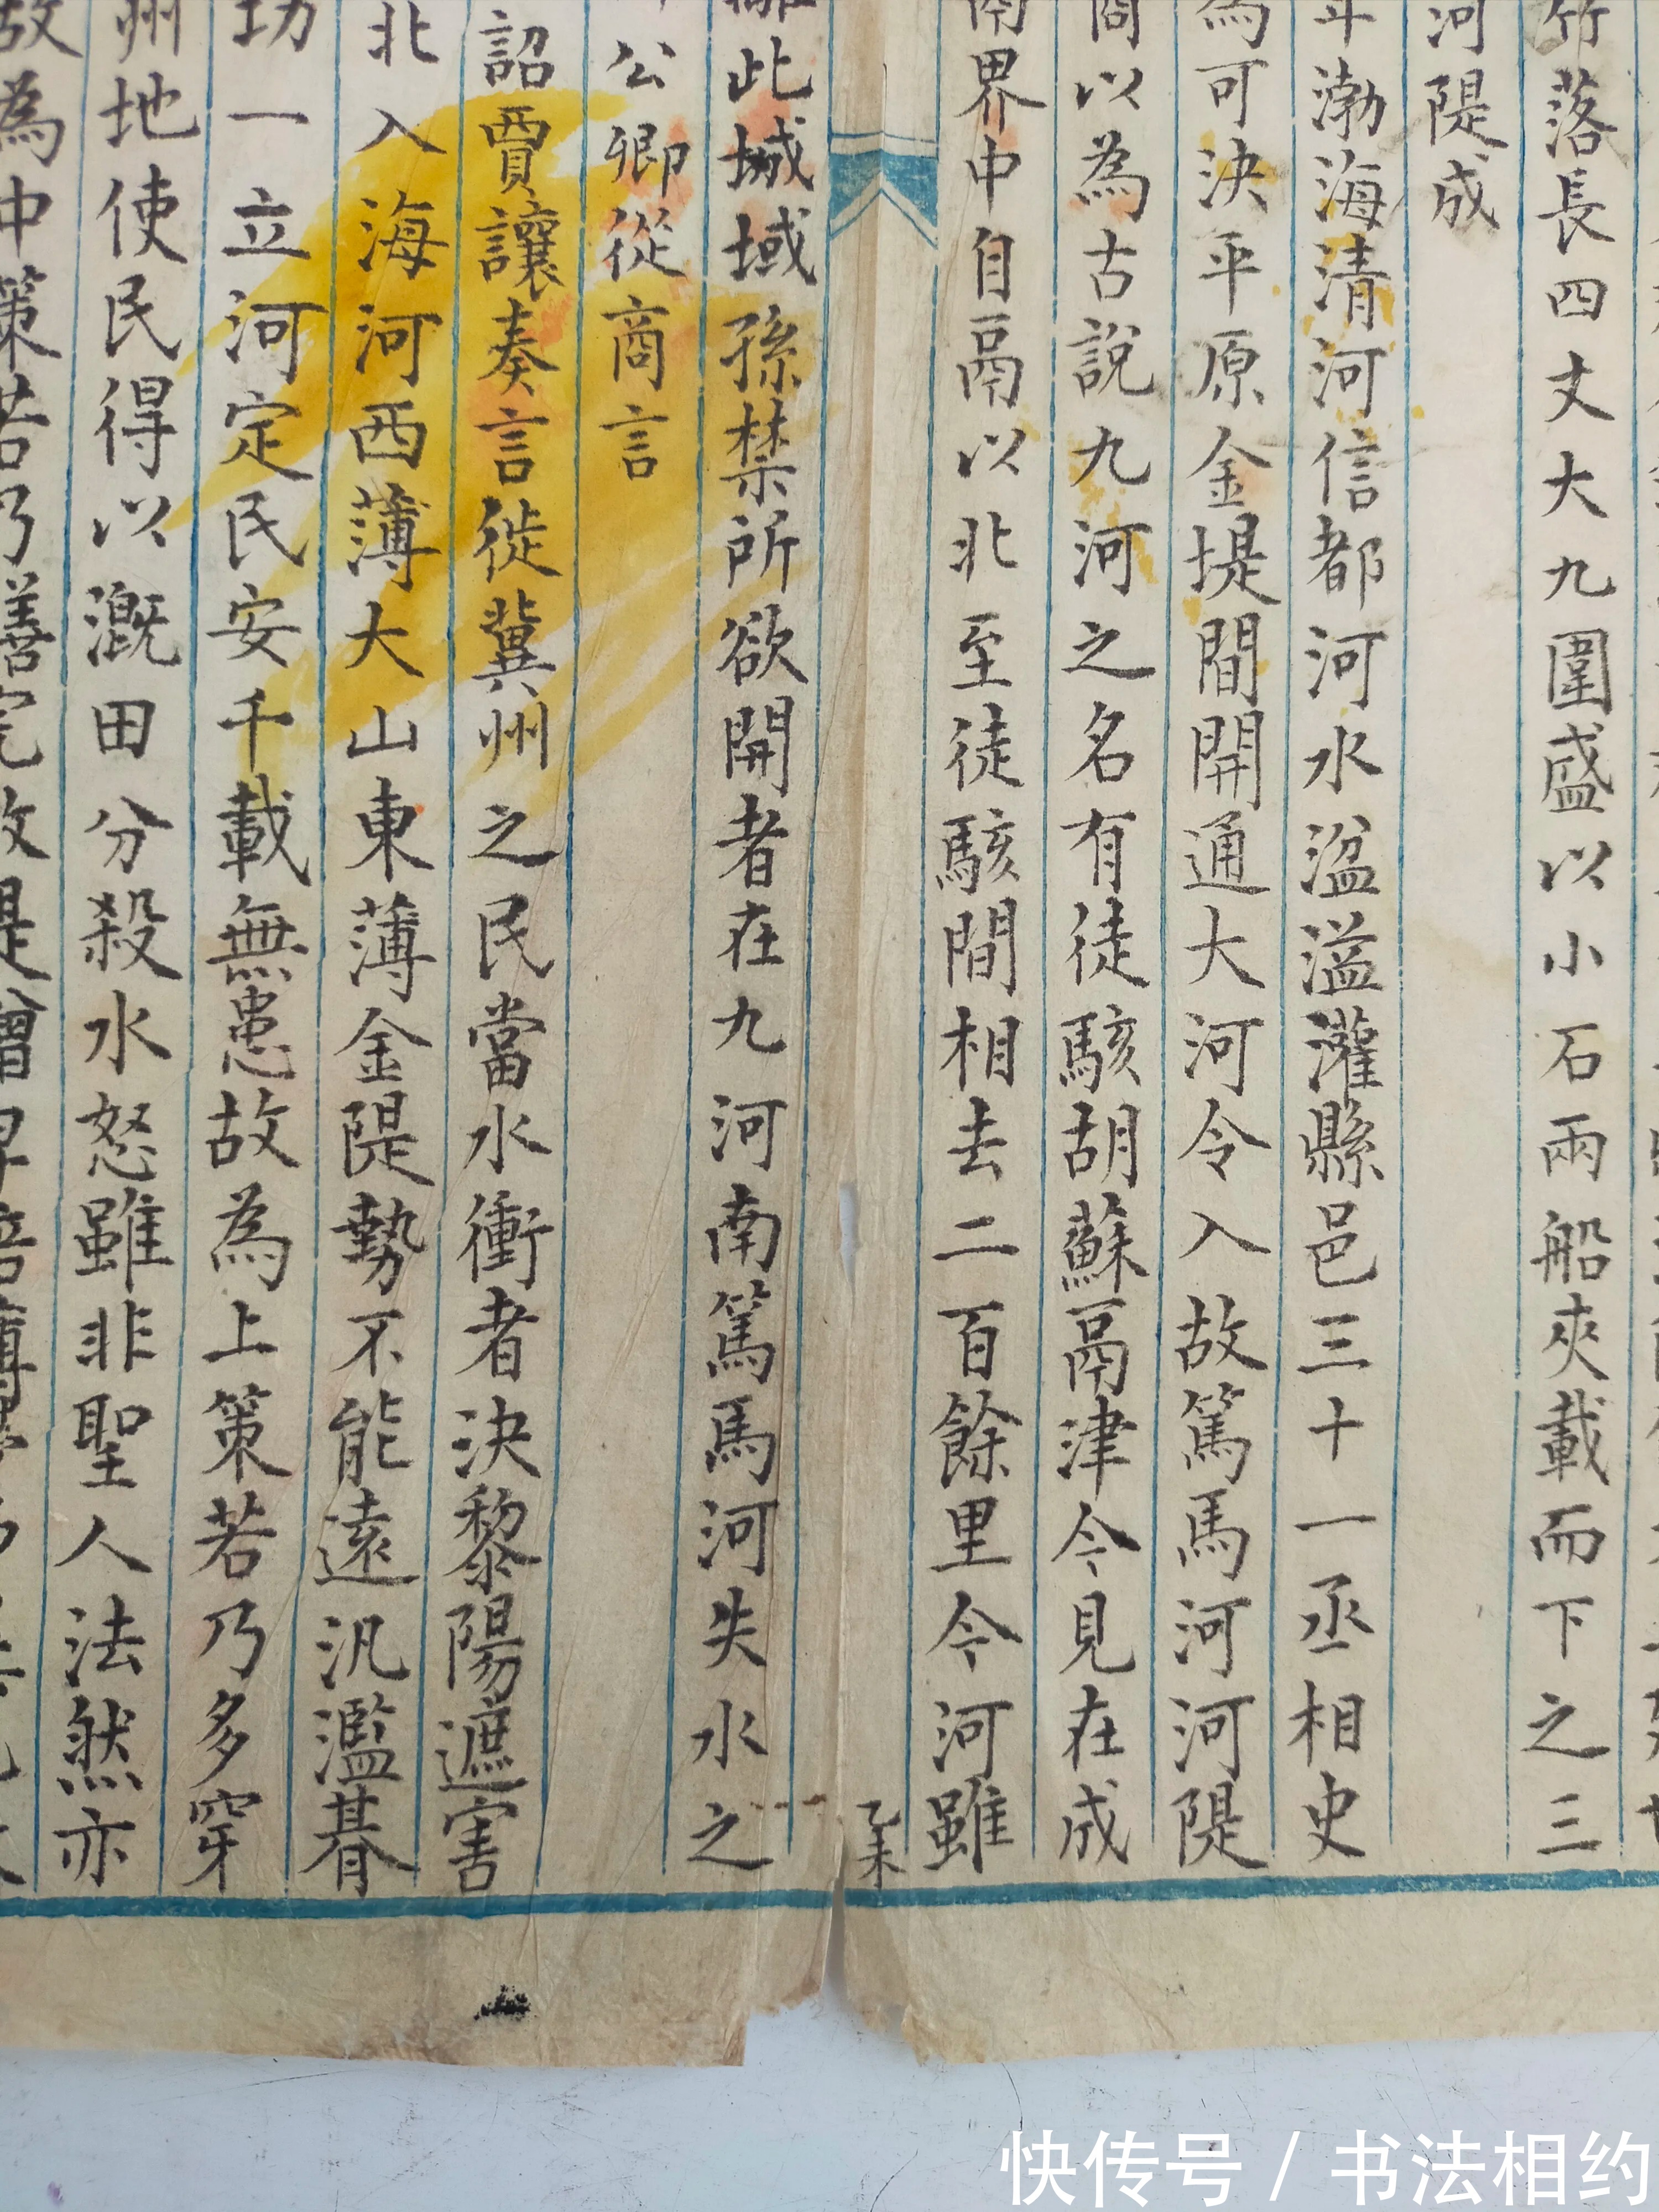 竹落長四丈大九圍盛以小石兩船夾載而下之三
河隄成
渤海清河信都河水湓溢灌縣邑三十一丞相史
為可決平原金堤間開通大河令入故篤馬河河隄
商以為古說九河之名有徒駭胡蘇鬲津今見在成
界中自鬲以北至徒駭間相去二百餘里今河雖
乙未
離此城域孫禁所欲開者在九河南篤馬河失水之
公卿從商言
詔賈讓奏言徙冀州之民當水衝者決黎陽遮害
北入海河西薄大山東薄金隄勢不能遠汎濫朞
功一立河定民安千載無患故為上策若乃多穿
州地使民得以溉田分殺水怒雖非聖人法然亦
故為中策若乃繕完故隄增卑倍薄
快传号 / 书法相约